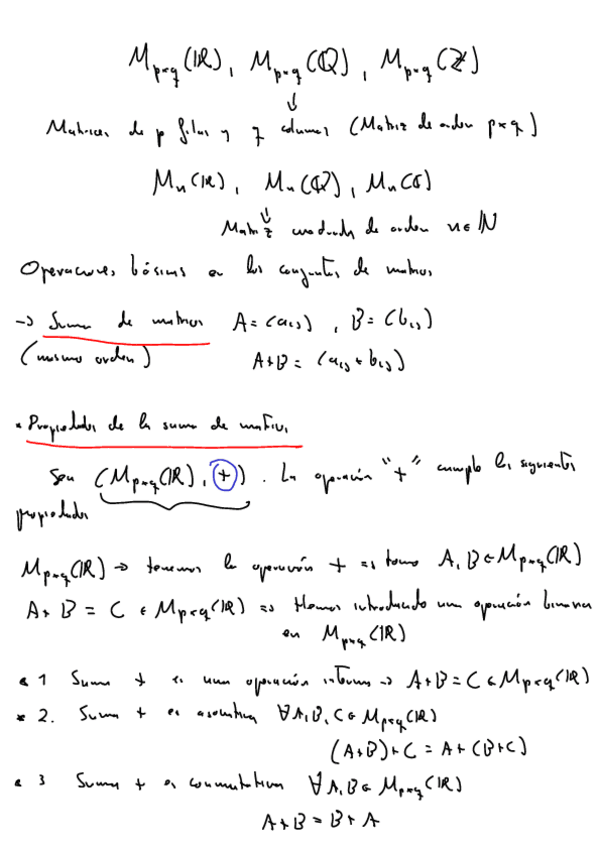 M_{p×q}(ℝ), M_{p×q}(ℚ), M_{p×q}(ℤ)
↓
Matrices de p filas y q columnas (Matriz de orden p×q)
M_n(ℝ), M_n(ℚ), M_n(ℂ)
↓
Matriz cuadrada de orden n∈ℕ
Operaciones básicas en los conjuntos de matrices
→ Suma de matrices A=(a_{ij}), B=(b_{ij})
(mismo orden) A+B=(a_{ij}+b_{ij})
• Propiedades de la suma de matrices
Sea (M_{p×q}(ℝ), +). La operación "+" cumple las siguientes
propiedades
M_{p×q}(ℝ) → tenemos la operación + ⇒ tomo A, B ∈ M_{p×q}(ℝ)
A+B = C ∈ M_{p×q}(ℝ) ⇒ Hemos introducido una operación binaria
en M_{p×q}(ℝ)
• 1 Suma + es una operación interna → A+B=C∈M_{p×q}(ℝ)
• 2. Suma + es asociativa ∀A,B,C∈M_{p×q}(ℝ)
(A+B)+C = A+(B+C)
• 3 Suma + es conmutativa ∀A,B∈M_{p×q}(ℝ)
A+B = B+A